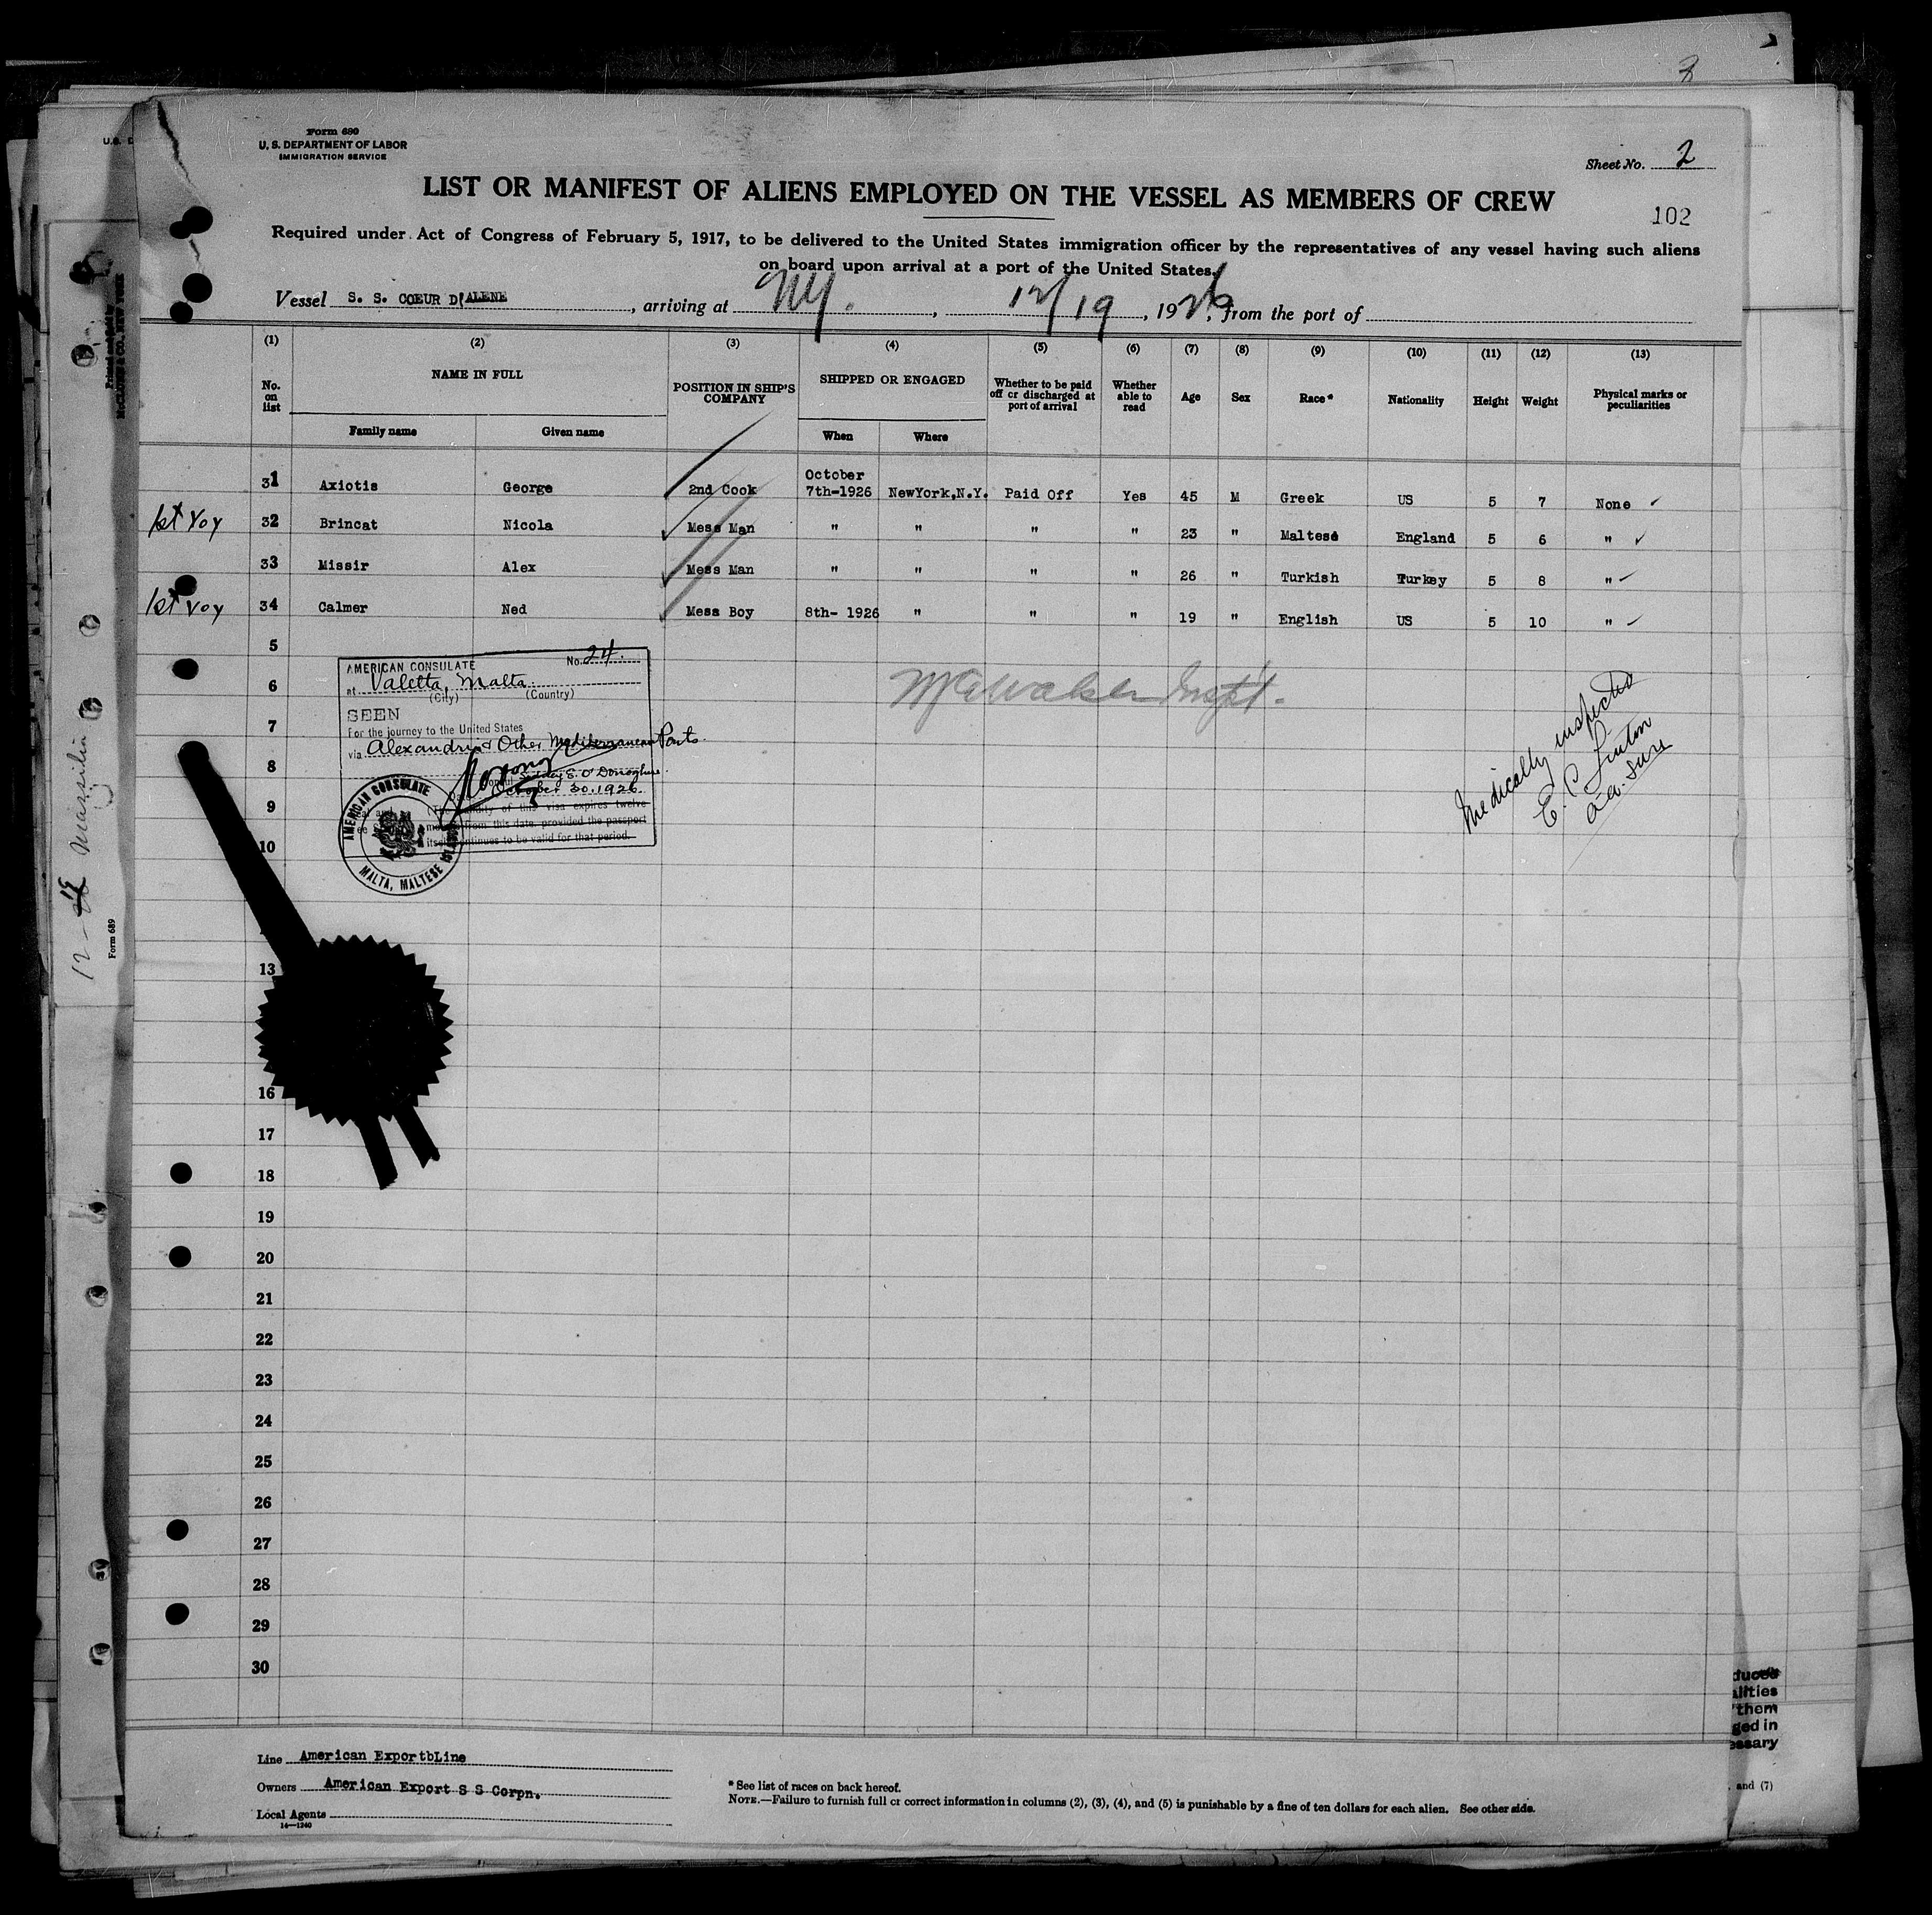 Form 680
U. S. DEPARTMENT OF LABOR
IMMIGRATION SERVICE
Sheet No. 2
LIST OR MANIFEST OF ALIENS EMPLOYED ON THE VESSEL AS MEMBERS OF CREW
102
Required under Act of Congress of February 5, 1917, to be delivered to the United States immigration officer by the representatives of any vessel having such aliens
on board upon arrival at a port of the United States.
Vessel S. S. COEUR D'ALENE, arriving at NY., 12/19, 1926, from the port of
(1) (2) (3) (4) (5) (6) (7) (8) (9) (10) (11) (12) (13)
No. on list NAME IN FULL POSITION IN SHIP'S COMPANY SHIPPED OR ENGAGED Whether to be paid off or discharged at port of arrival Whether able to read Age Sex Race* Nationality Height Weight Physical marks or peculiarities
Family name Given name When Where
31 Axiotis George 2nd Cook October 7th-1926 NewYork,N.Y. Paid Off Yes 45 M Greek US 5 7 None
1st Voy 32 Brincat Nicola Mess Man " " " " 23 " Maltese England 5 6 "
33 Missir Alex Mess Man " " " " 26 " Turkish Turkey 5 8 "
1st Voy 34 Calmer Ned Mess Boy 8th- 1926 " " " 19 " English US 5 10 "
5
6
7
8
9
10
13
16
17
18
19
20
21
22
23
24
25
26
27
28
29
30
AMERICAN CONSULATE No. 24.
at Valetta, Malta
(City) (Country)
SEEN
For the journey to the United States
via Alexandria & Other Mediterranean Ports
Sidney E. O'Donoghue.
October 30. 1926.
of this visa expires twelve
from this date, provided the passport
continues to be valid for that period.
AMERICAN CONSULATE
MALTA, MALTESE
Medically inspected
E. C. Linton
a.a. Sure
Line American ExportbLine
Owners American Export S S Corpn.
Local Agents
14—1240
* See list of races on back hereof.
NOTE.—Failure to furnish full or correct information in columns (2), (3), (4), and (5) is punishable by a fine of ten dollars for each alien. See other side.
Form 689
McCLOUD & CO., NEW YORK
duced
alities
them
ged in
essary
and (7)